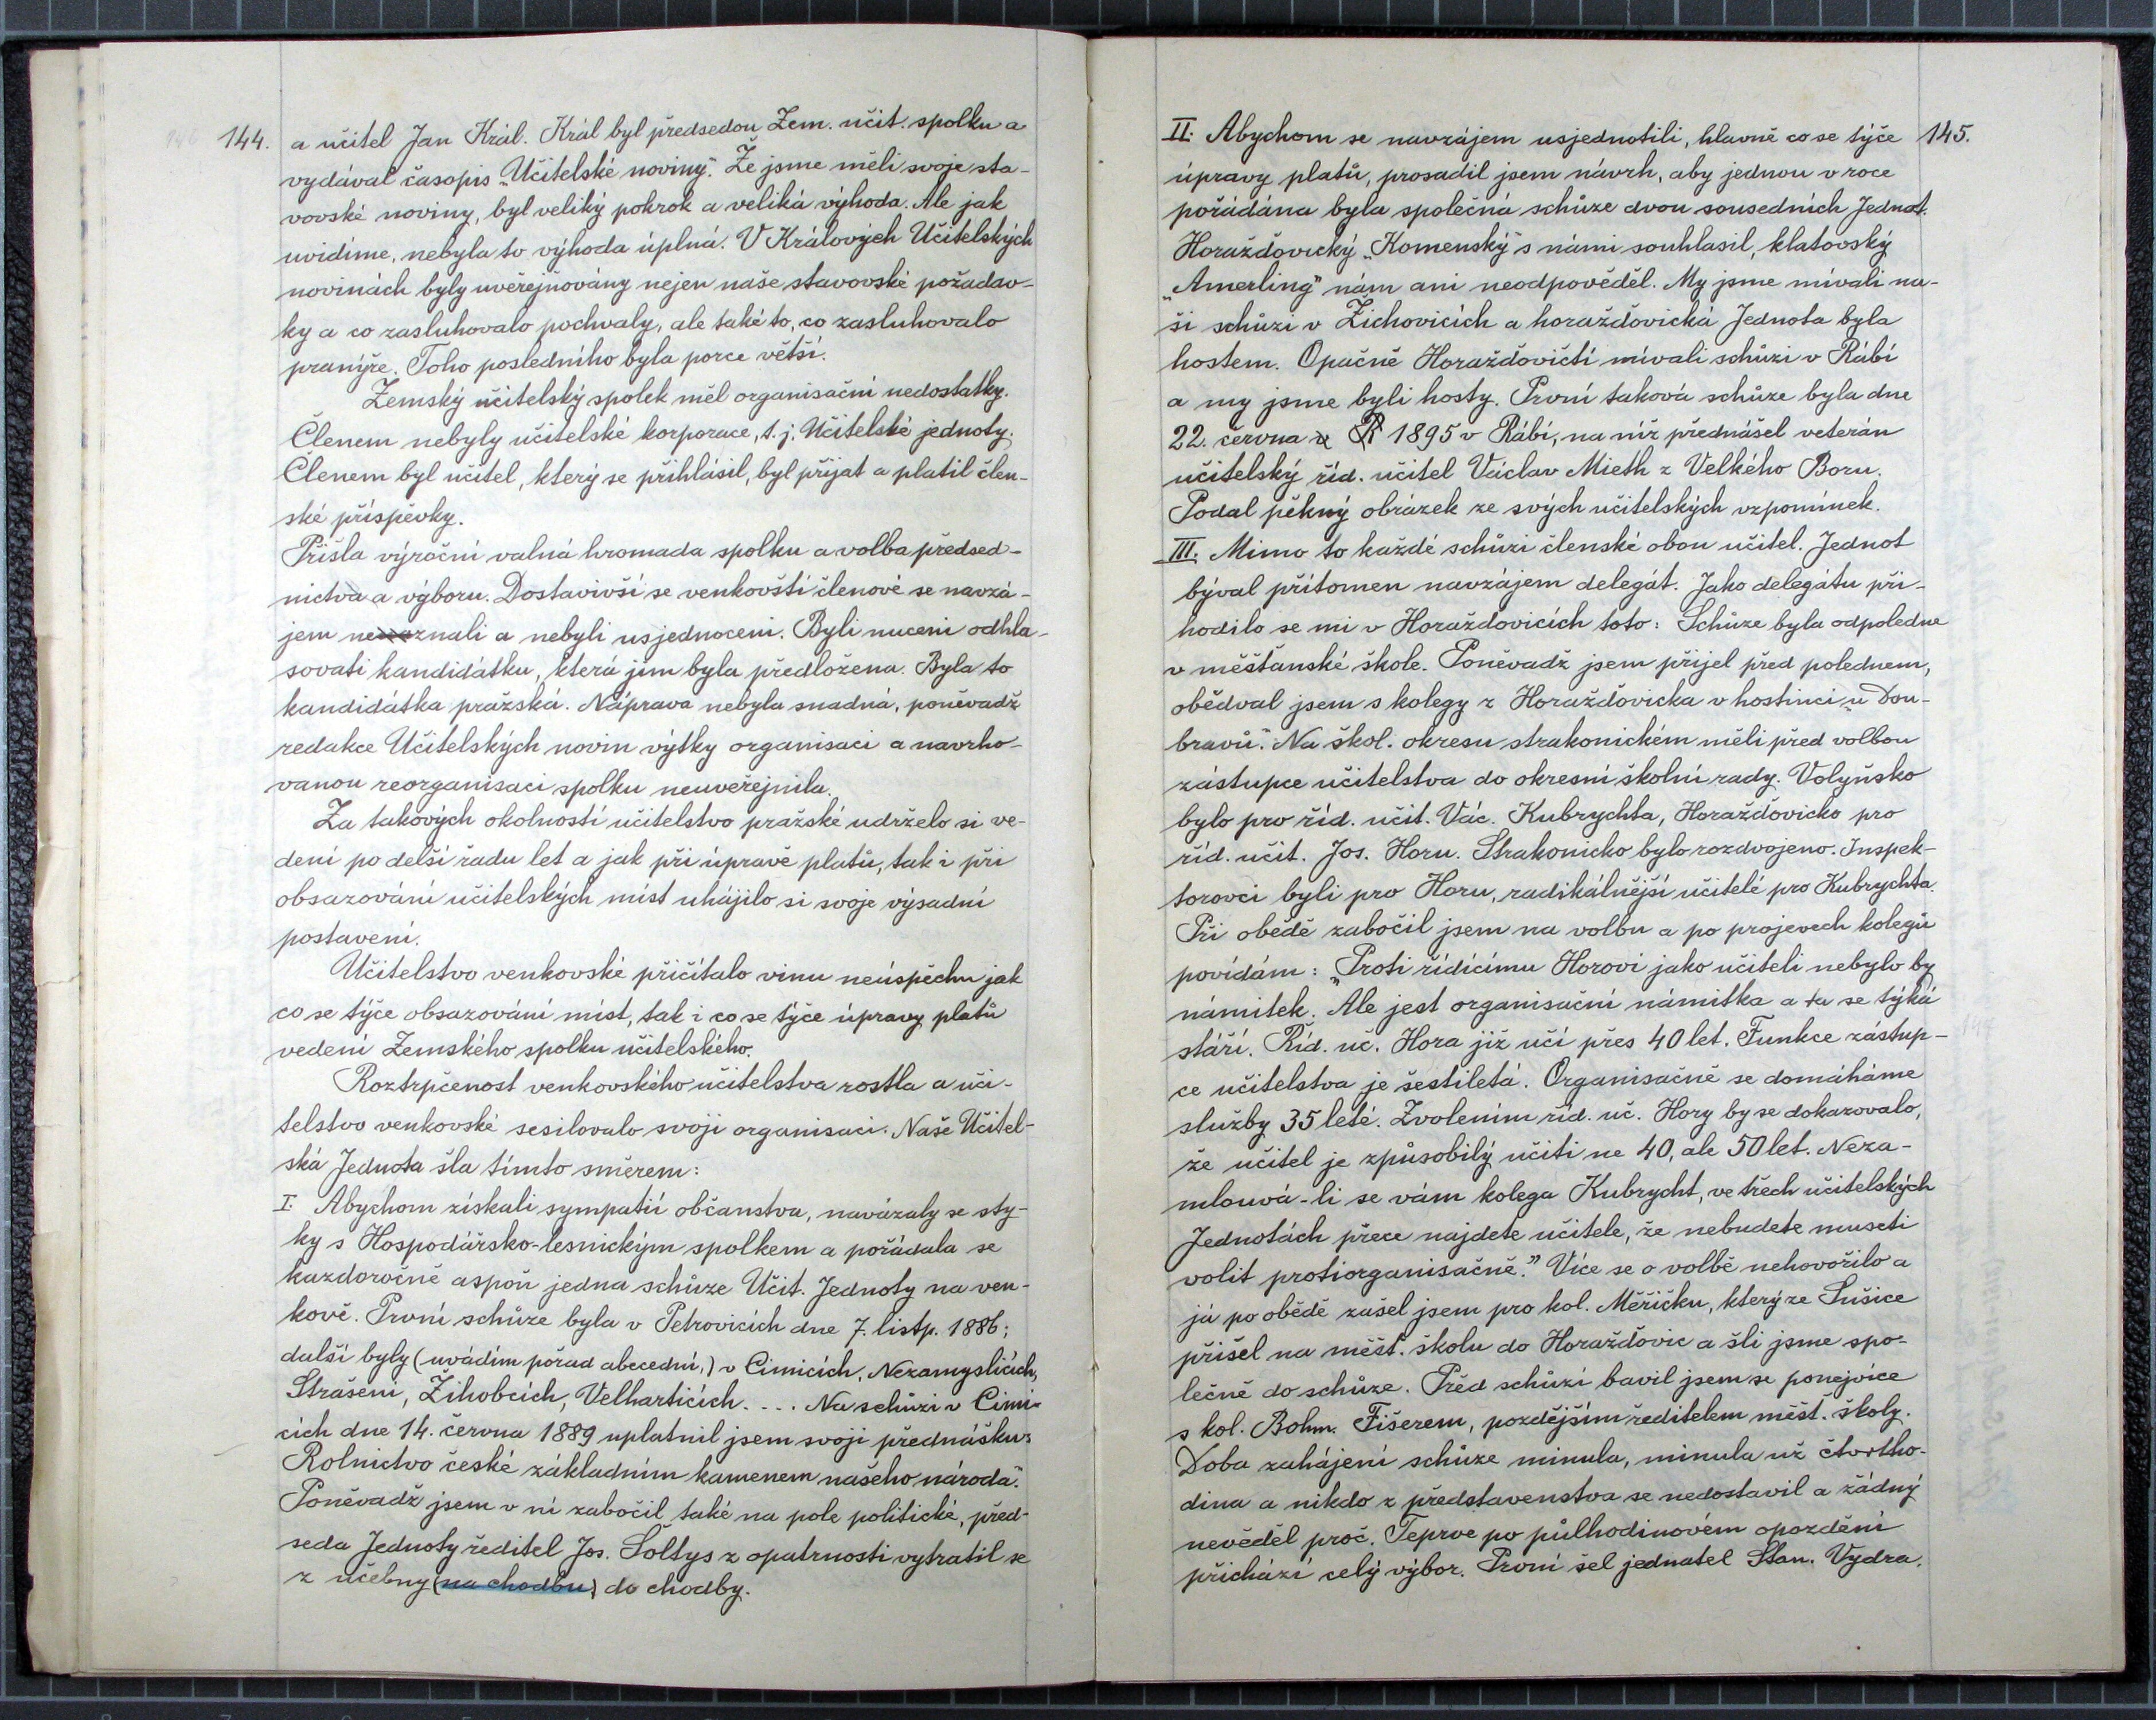 144.
a učitel Jan Král. Král byl předsedou Zem. učit. spolku a
vydával časopis „Učitelské noviny." Že jsme měli svoje sta-
vovské noviny, byl veliký pokrok a veliká výhoda. Ale jak
uvidíme, nebyla to výhoda úplná. V Králových Učitelských
novinách byly uveřejňovány nejen naše stavovské požadav-
ky a co zasluhovalo pochvaly, ale také to, co zasluhovalo
pranýře. Toho posledního byla porce větší.
Zemský učitelský spolek měl organisační nedostatky.
Členem nebyly učitelské korporace, t. j. Učitelské jednoty.
Členem byl učitel, který se přihlásil, byl přijat a platil člen-
ské příspěvky.
Přišla výroční valná hromada spolku a volba předsed-
nictva a výboru. Dostavivší se venkovští členové se navzá-
jem neznali a nebyli usjednoceni. Byli nuceni odhla-
sovati kandidátku, která jim byla předložena. Byla to
kandidátka pražská. Náprava nebyla snadná, poněvadž
redakce Učitelských novin výtky organisaci a navrho-
vanou reorganisaci spolku neuveřejnila.
Za takových okolností učitelstvo pražské udrželo si ve-
dení po delší řadu let a jak při úpravě platů, tak i při
obsazování učitelských míst uhájilo si svoje výsadní
postavení.
Učitelstvo venkovské přičítalo vinu neúspěchu jak
co se týče obsazování míst, tak i co se týče úpravy platů
vedení Zemského spolku učitelského.
Roztrpčenost venkovského učitelstva rostla a uči-
telstvo venkovské sesilovalo svoji organisaci. Naše Učitel-
ská Jednota šla tímto směrem:
I. Abychom získali sympatií občanstva, navázaly se sty-
ky s Hospodářsko-lesnickým spolkem a pořádala se
každoročně aspoň jedna schůze Učit. Jednoty na ven-
kově. První schůze byla v Petrovicích dne 7. listp. 1886;
další byly (uvádím pořad abecední,) v Čimicích, Nezamyslicích,
Strašeni, Žihobcích, Velharticích.... Na schůzi v Čimi-
cích dne 14. června 1889 uplatnil jsem svoji přednášku:
Rolnictvo české základním kamenem našeho národa."
Poněvadž jsem v ní zabočil také na pole politické, před-
seda Jednoty ředitel Jos. Šoltys z opatrnosti vytratil se
z učebny (na chodbu) do chodby.
145.
II. Abychom se navzájem usjednotili, hlavně co se týče
úpravy platů, prosadil jsem návrh, aby jednou v roce
pořádána byla společná schůze dvou sousedních Jednot.
Horažďovický „Komenský" s námi souhlasil, klatovský
„Amerling" nám ani neodpověděl. My jsme mívali na-
ši schůzi v Žichovicích a horažďovická Jednota byla
hostem. Opačně Horažďovičtí mívali schůzi v Rábí
a my jsme byli hosty. První taková schůze byla dne
22. června v R 1895 v Rábí, na níž přednášel veterán
učitelský říd. učitel Václav Mieth z Velkého Boru.
Podal pěkný obrázek ze svých učitelských vzpomínek.
III. Mimo to každé schůzi členské obou učitel. Jednot
býval přítomen navzájem delegát. Jako delegátu při-
hodilo se mi v Horažďovicích toto: Schůze byla odpoledne
v měšťanské škole. Poněvadž jsem přijel před polednem,
obědval jsem s kolegy z Horažďovicka v hostinci „u Dou-
bravů." Na škol. okresu strakonickém měli před volbou
zástupce učitelstva do okresní školní rady. Volyňsko
bylo pro říd. učit. Vác. Kubrychta, Horažďovicko pro
říd. učit. Jos. Horu. Strakonicko bylo rozdvojeno. Inspek-
torovci byli pro Horu, radikálnější učitelé pro Kubrychta.
Při obědě zabočil jsem na volbu a po projevech kolegů
povídám: „Proti řídícímu Horovi jako učiteli nebylo by
námitek. Ale jest organisační námitka a ta se týká
stáří. Říd. uč. Hora již učí přes 40 let. Funkce zástup-
ce učitelstva je šestiletá. Organisačně se domáháme
služby 35 leté. Zvolením říd. uč. Hory by se dokazovalo,
že učitel je způsobilý učiti ne 40, ale 50 let. Neza-
mlouvá-li se vám kolega Kubrycht, ve třech učitelských
Jednotách přece najdete učitele, že nebudete museti
volit protiorganisačně." Více se o volbě nehovořilo a
já po obědě zašel jsem pro kol. Měřičku, který ze Sušice
přišel na měšť. školu do Horažďovic a šli jsme spo-
lečně do schůze. Před schůzí bavil jsem se ponejvíce
s kol. Bohm. Fišerem, pozdějším ředitelem měšť. školy.
Doba zahájení schůze minula, minula už čtvrtho-
dina a nikdo z představenstva se nedostavil a žádný
nevěděl proč. Teprve po půlhodinovém opozdění
přichází celý výbor. První šel jednatel Stan. Vydra.